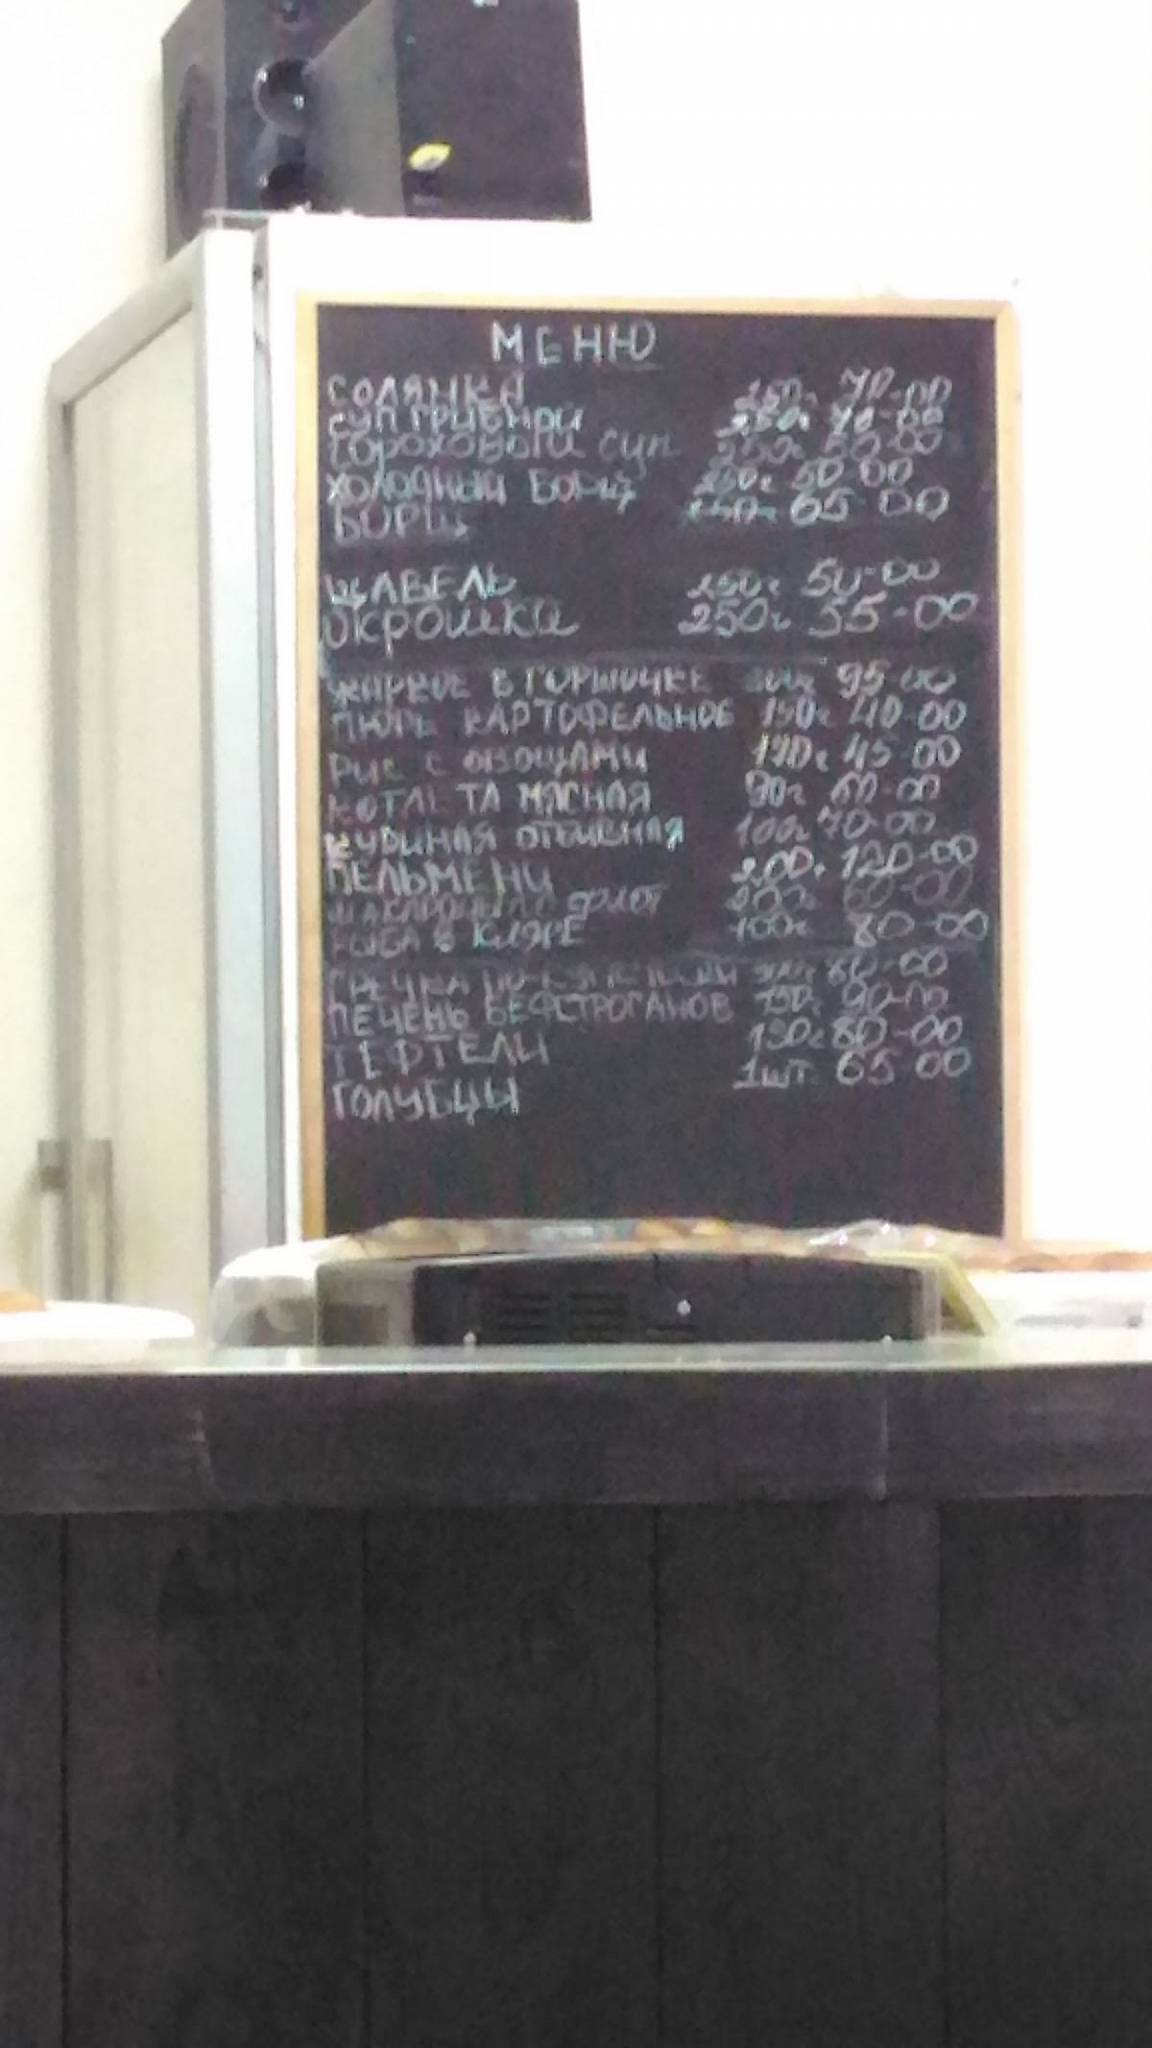 МЕНЮ
СОЛЯНКА 250г 70-00
СУП ГРИБНОЙ 250г 70-00
Гороховый суп 250г 50-00
ХОЛОДНЫЙ БОРЩ 250г 50-00
БОРЩ 250г 65-00
ЩАВЕЛЬ 250г 50-00
Окрошка 250г 55-00
ЖАРКОЕ В ГОРШОЧКЕ 95-00
ПЮРЕ КАРТОФЕЛЬНОЕ 150г 40-00
РИС С ОВОЩАМИ 45-00
КОТЛЕТА МЯСНАЯ 90г 60-00
КУРИНАЯ ОТБИВНАЯ 100г 70-00
ПЕЛЬМЕНИ 200г 120-00
200г 60-00
РЫБА В КЛЯРЕ 100г 80-00
ГРЕЧКА ПО-КУПЕЧЕСКИ 60-00
ПЕЧЕНЬ БЕФСТРОГАНОВ 150г 90-00
ТЕФТЕЛИ 80-00
ГОЛУБЦЫ 1шт. 65-00